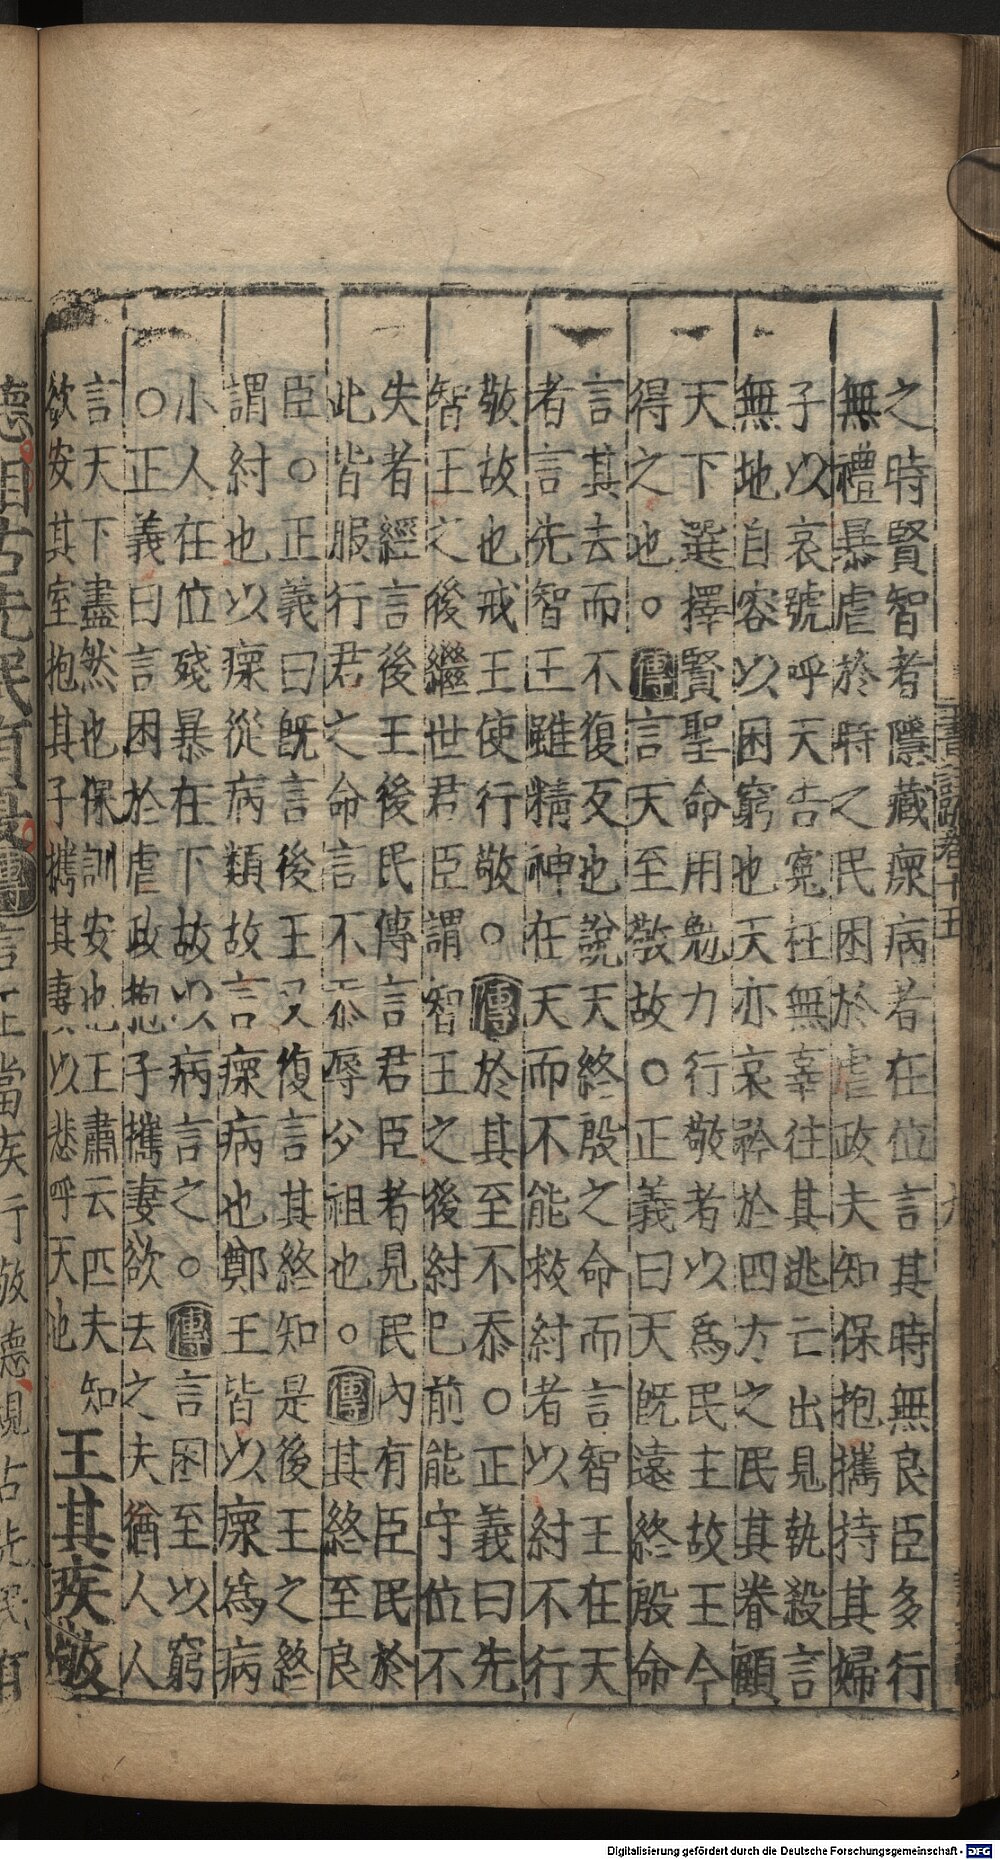 之時賢智者隱藏瘝病者在位言其時無良臣多行
無禮暴虐於時之民困於虐政夫知保抱攜持其婦
子以哀號呼天告冤枉無辜往其逃亡出見執殺言
無地自容以困窮也天亦哀矜於四方之民其眷顧
天下選擇賢聖命用勉力行敬者以為民主故王今
得之也○傳言天至敬故○正義曰天旣遠終殷命
言其去而不復反也說天終殷之命而言智王在天
者言先智王雖精神在天而不能救紂者以紂不行
敬故也戒王使行敬○傳於其至不忝○正義曰先
智王之後繼世君臣謂智王之後紂巳前能守位不
失者經言後王後民傳言君臣者見民內有臣民於
此皆服行君之命言不忝辱父祖也○傳其終至良
臣○正義曰旣言後王又復言其終知是後王之終
謂紂也以瘝從病類故言瘝病也鄭王皆以瘝為病
小人在位殘暴在下故以病言之○傳言困至以窮
○正義曰言困於虐政抱子攜妻欲去之夫猶人人
言天下盡然也保訓安也王肅云匹夫知
欲安其室抱其子攜其妻以悲呼天也
王其疾敬
書註疏卷十五
德相古先民有夏傳言王當疾行敬德視古先民有
Digitalisierung gefördert durch die Deutsche Forschungsgemeinschaft - DFG